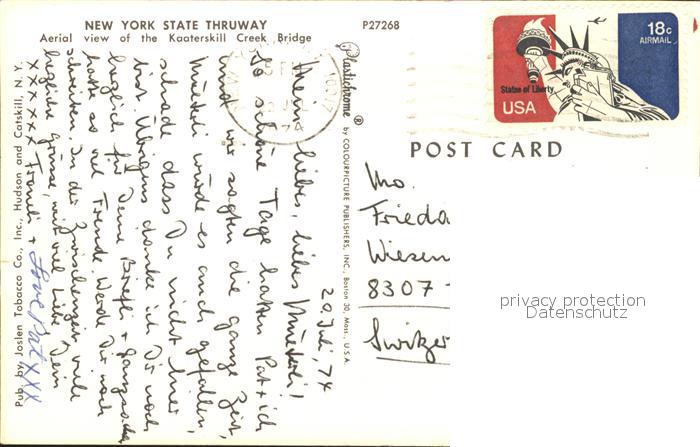 NEW YORK STATE THRUWAY
Aerial view of the Kaaterskill Creek Bridge
P27268
18c
AIRMAIL
Statue of Liberty
USA
Plastichrome ® by COLOURPICTURE PUBLISHERS, INC., Boston 30, Mass., U.S.A.
POST CARD
Pub. by Joslen Tobacco Co., Inc., Hudson and Catskill, N. Y.
20. Juli, 74
Mein liebes, liebes Muetti!
So schöne Tage hatten Pat + ich
und wir sagten die ganze Zeit,
Muetti würde es auch gefallen,
schade dass Du nicht hier
bist. Übrigens danke ich Dir noch
herzlich für Deine Briefli +
hatte so viel Freude. Werde Dir noch
schreiben. In der Zwischenzeit viele
herzliche Grüsse, mit viel Liebe Dein
XXXXXX + Love Pat XXX
Frieda
Wiesen
8307 -
Switzer
privacy protection
Datenschutz